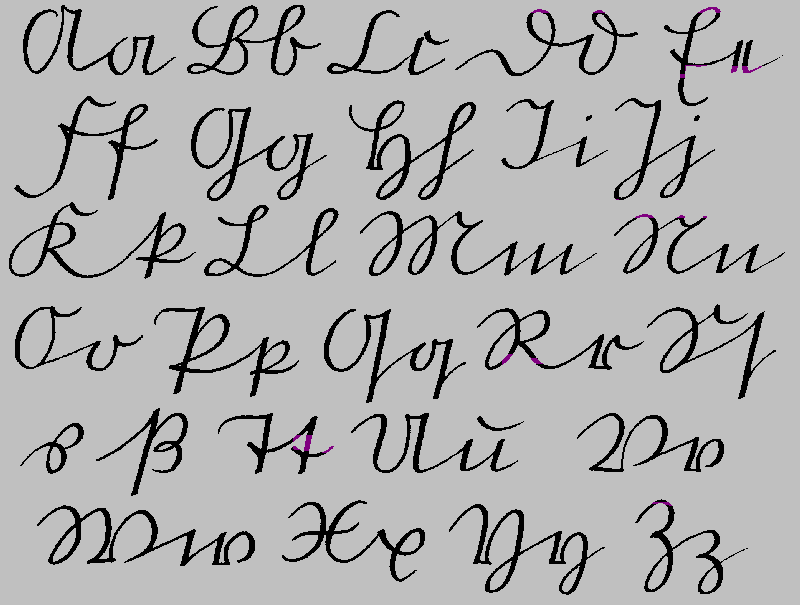 A a B b C c D d E e
F f G g H h I i J j
K k L l M m N n
O o P p Q q R r S ſ
s ß T t U u V v
W w X x Y y Z z